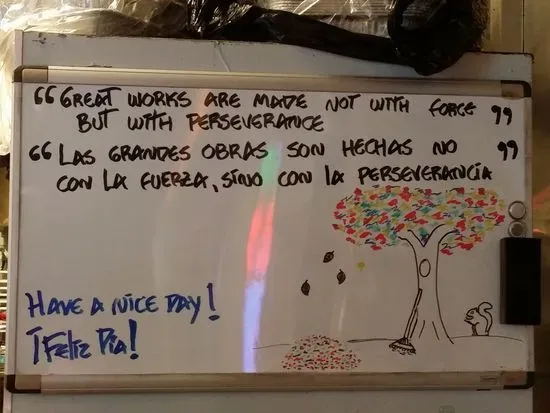 “GREAT WORKS ARE MADE NOT WITH FORCE ”
BUT WITH PERSEVERANCE
“LAS GRANDES OBRAS SON HECHAS NO ”
CON LA FUERZA, SINO CON LA PERSEVERANCIA
HAVE A NICE DAY!
¡FELIZ DIA!